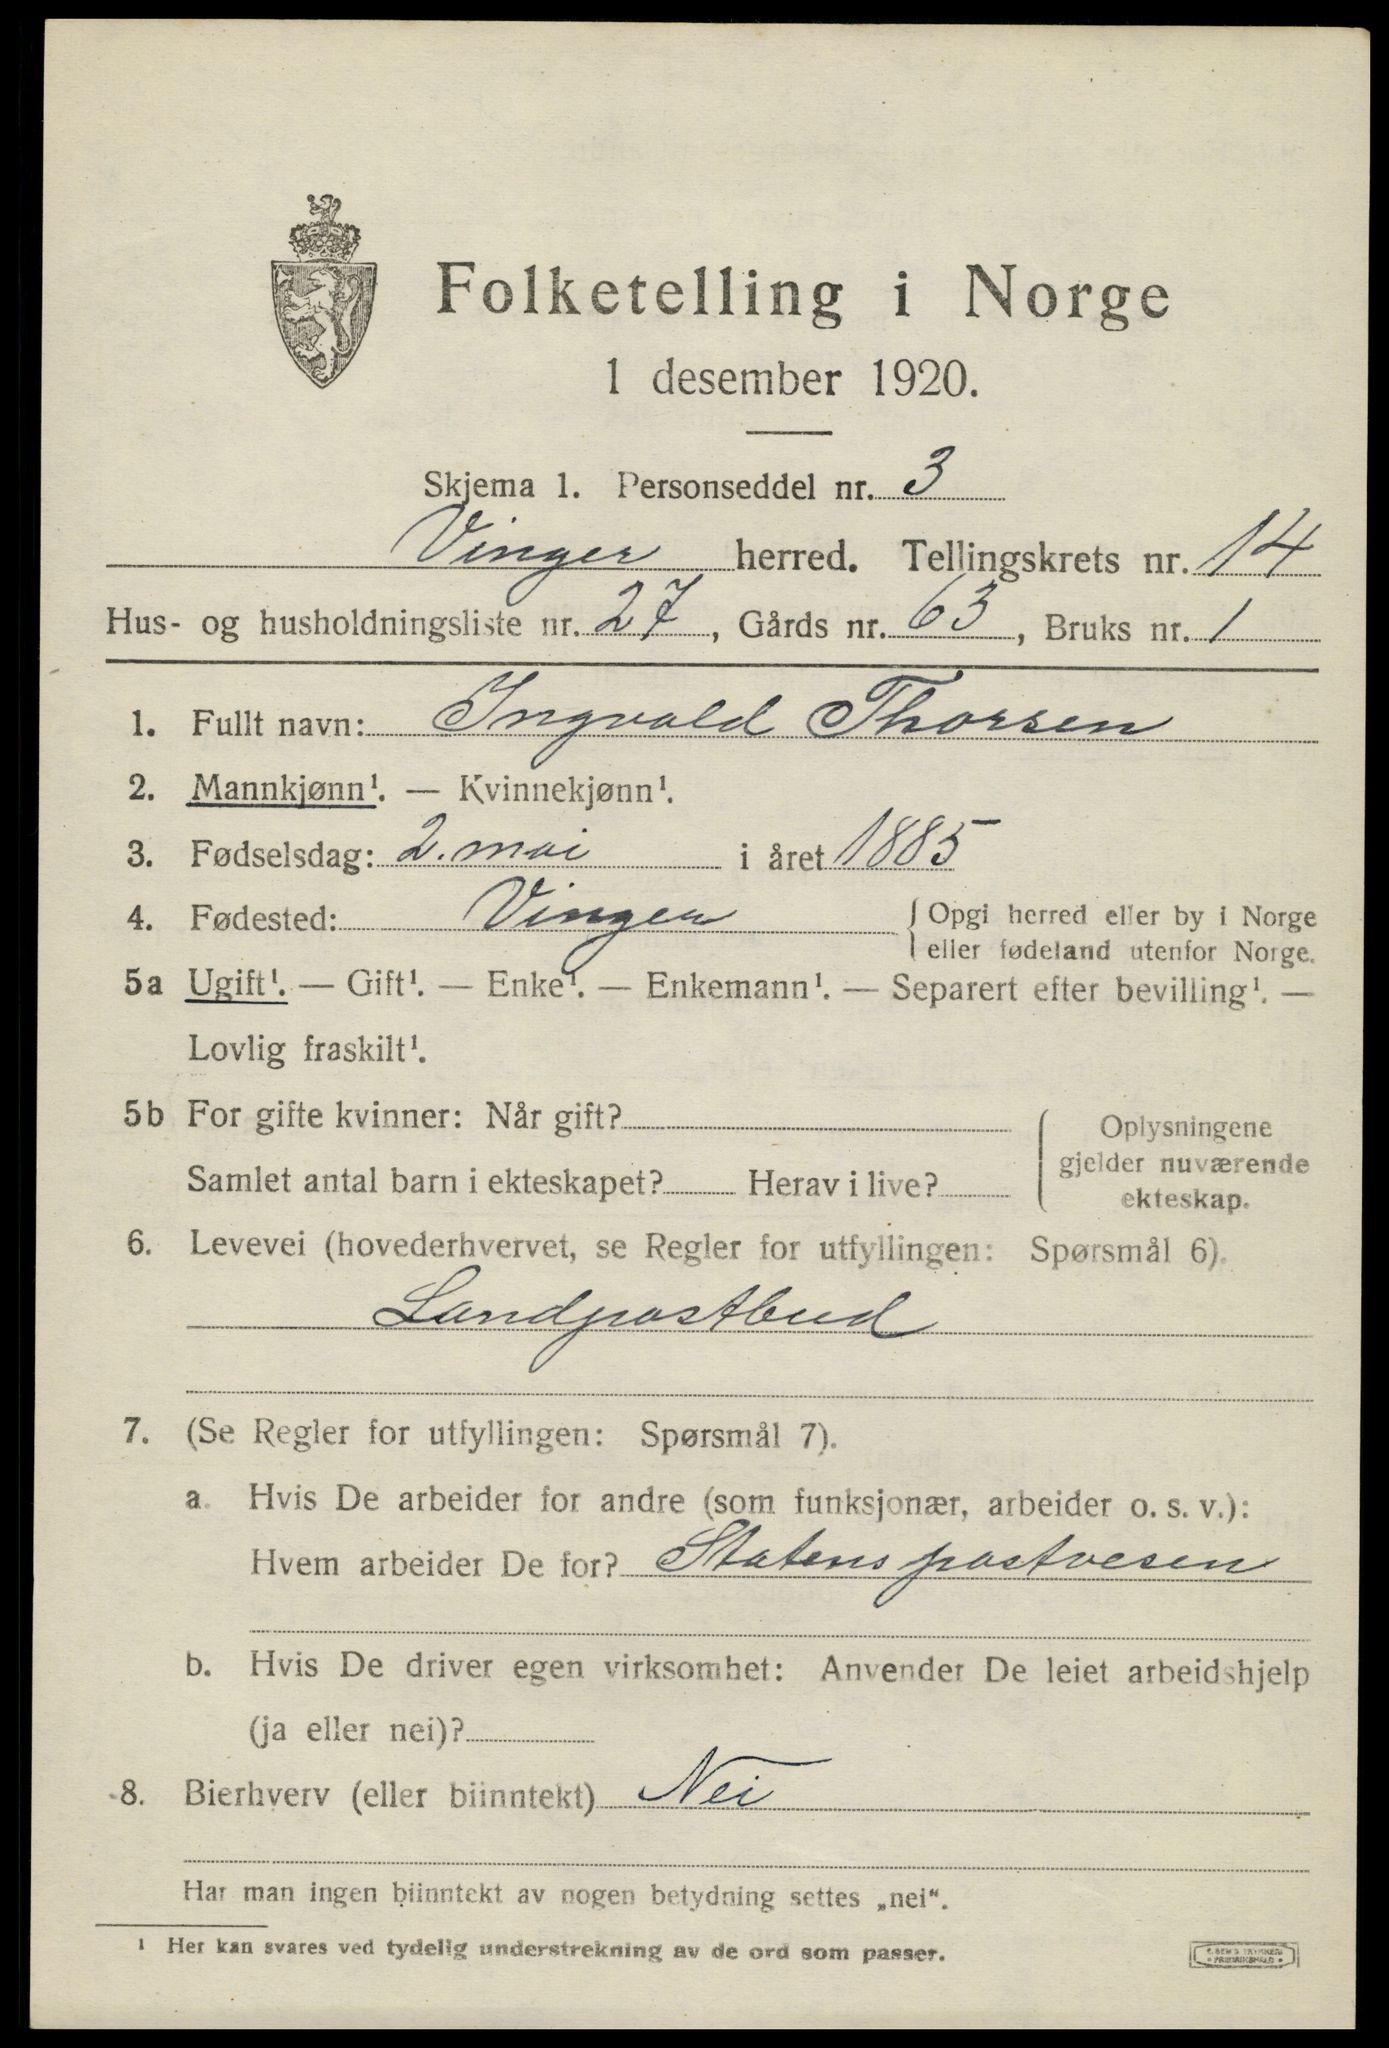 Folketelling i Norge
1 desember 1920.
Skjema 1. Personseddel nr. 3
Vinger herred. Tellingskrets nr. 14
Hus- og husholdningsliste nr. 27, Gårds nr. 63, Bruks nr. 1
1. Fullt navn: Ingvald Thorsen
2. Mannkjønn¹. — Kvinnekjønn¹.
3. Fødselsdag: 2. mai i året 1885
4. Fødested: Vinger { Opgi herred eller by i Norge
eller fødeland utenfor Norge.
5a Ugift¹. — Gift¹. — Enke¹. — Enkemann¹. — Separert efter bevilling¹. —
Lovlig fraskilt¹.
5b For gifte kvinner: Når gift?
Samlet antal barn i ekteskapet? Herav i live?
Oplysningene
gjelder nuværende
ekteskap.
6. Levevei (hovederhvervet, se Regler for utfyllingen: Spørsmål 6).
Landpostbud
7. (Se Regler for utfyllingen: Spørsmål 7).
a. Hvis De arbeider for andre (som funksjonær, arbeider o. s. v.):
Hvem arbeider De for? Statens postvesen
b. Hvis De driver egen virksomhet: Anvender De leiet arbeidshjelp
(ja eller nei)?
8. Bierhverv (eller biinntekt) Nei
Har man ingen biinntekt av nogen betydning settes „nei“.
¹ Her kan svares ved tydelig understrekning av de ord som passer.